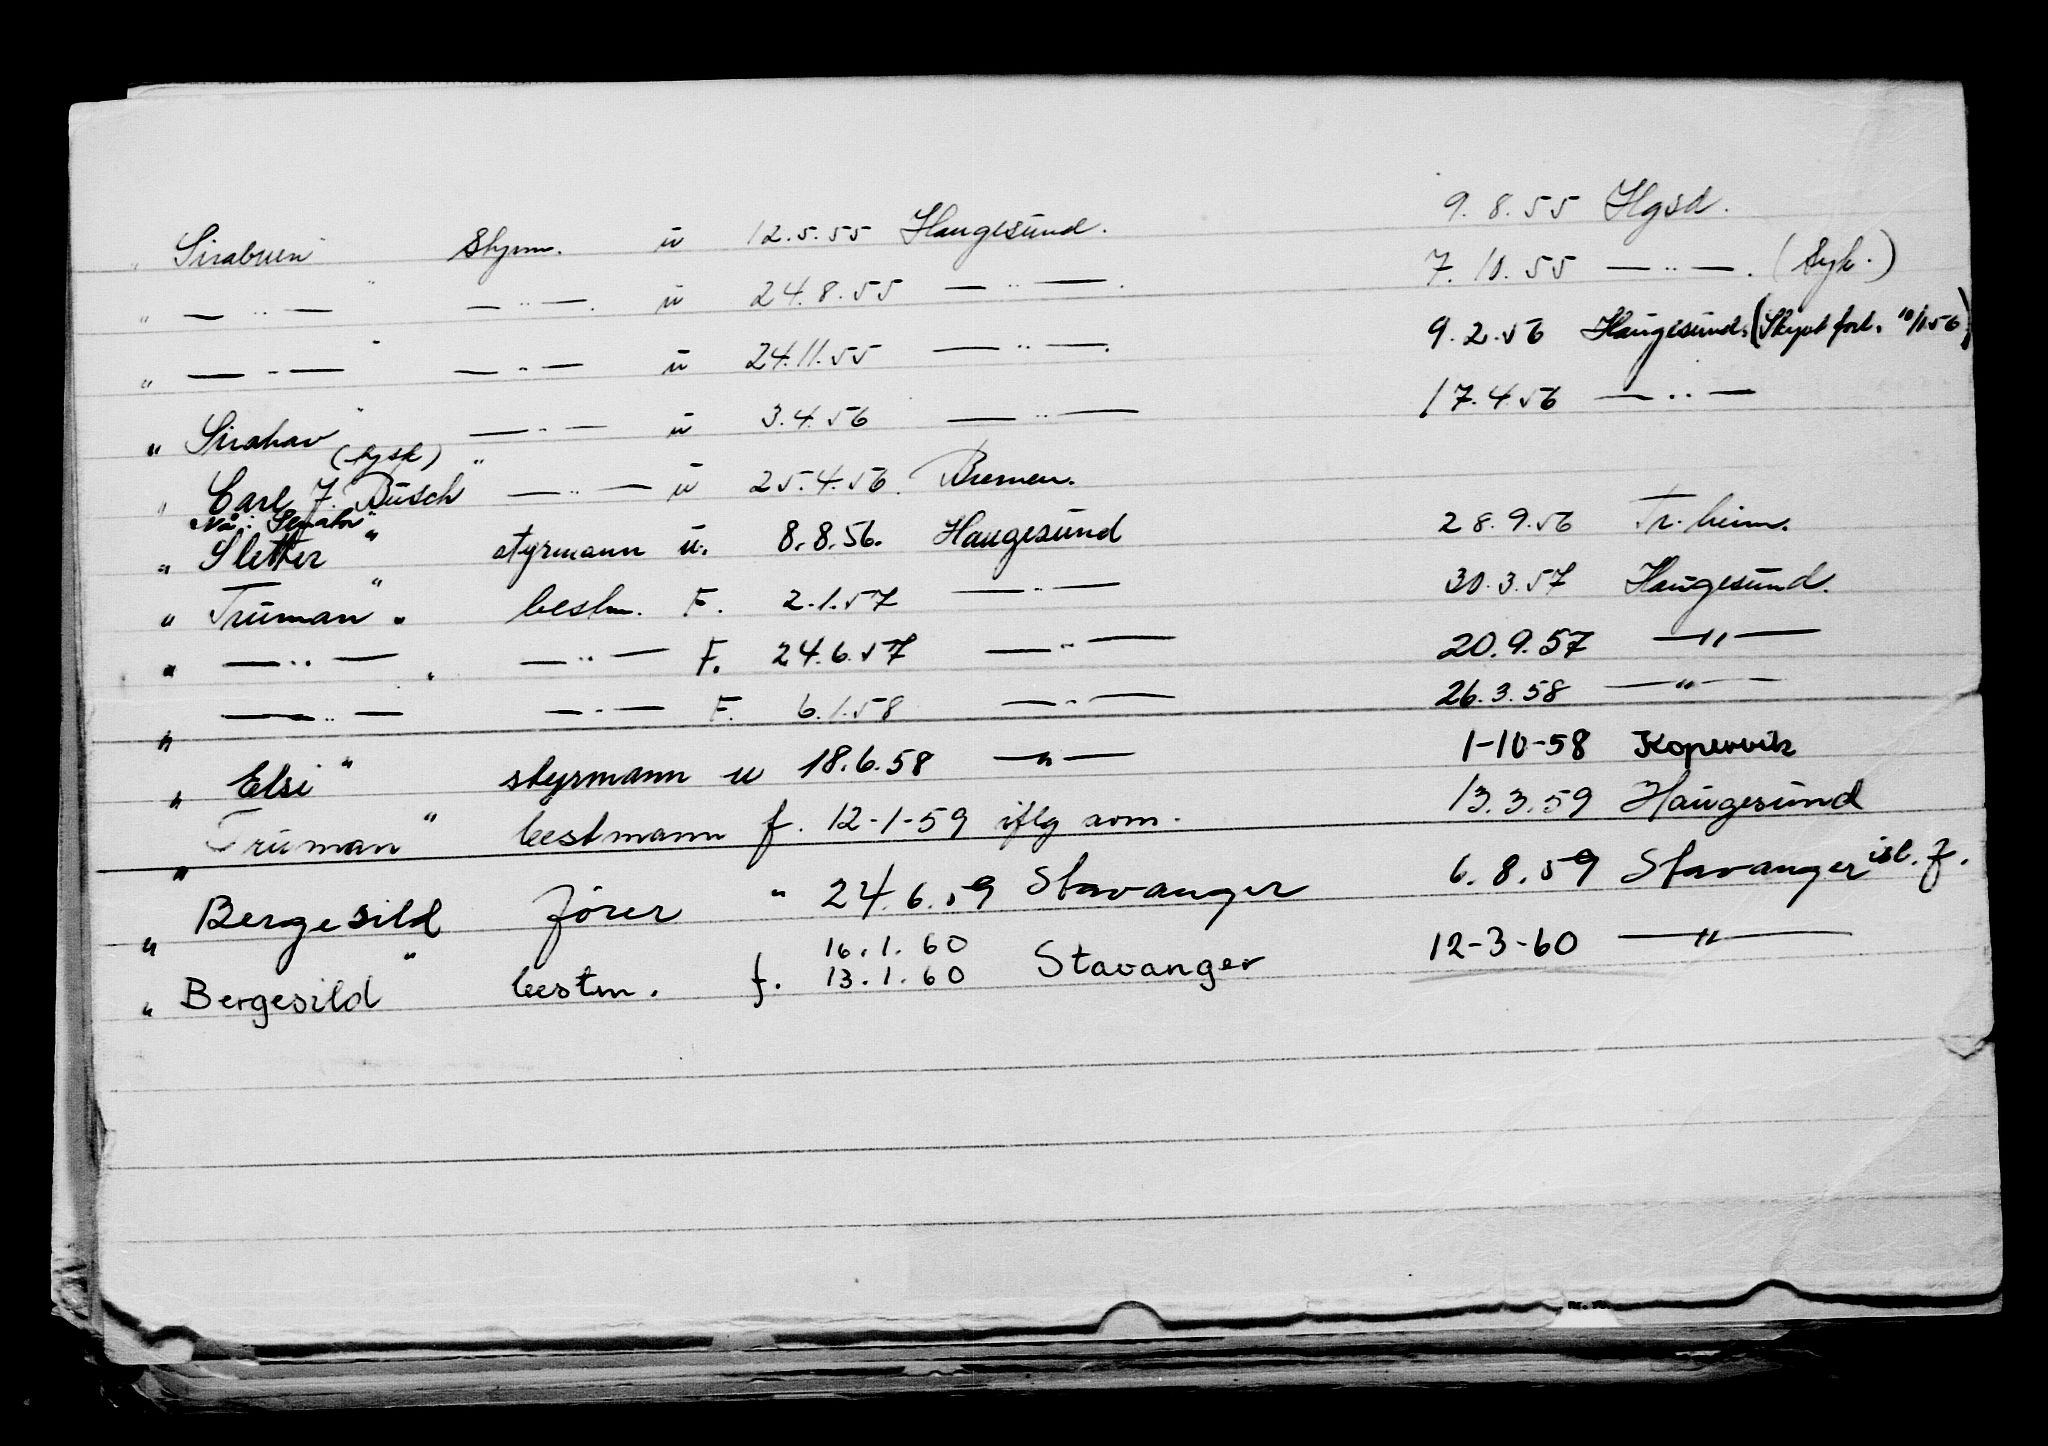 " Sirabuen" Styrm. u 12.5.55 Haugesund. 9.8.55 Hgsd.
" — " — " — " —. u 24.8.55 — " —. 7.10.55 — " —. (Syk.)
" — " — " — " — u 24.11.55 — " —. 9.2.56 Haugesund. (Skipet forl. 10/1.56)
" Sirahav" — " — u 3.4.56 — " — 17.4.56 — " —
" Carl J. Busch" (tysk) — " — u 25.4.56. Bremen.
Nå: Senator"
" Sletter" styrmann u. 8.8.56. Haugesund 28.9.56 Tr.heim.
" Truman". bestm. F. 2.1.57 — " — 30.3.57 Haugesund.
" — " — " — " — F. 24.6.57 — " — 20.9.57 — " —
" — " — — " — F. 6.1.58 — " — 26.3.58 — " —
" Elsi" styrmann u 18.6.58 — " — 1-10-58 Kopervik
" Truman" bestmann f. 12-1-59 iflg avm. 13.3.59 Haugesund
" Bergesild" fører " 24.6.59 Stavanger 6.8.59 Stavanger isl. f.
16.1.60
" Bergesild bestm. f. 13.1.60 Stavanger 12-3-60 — " —